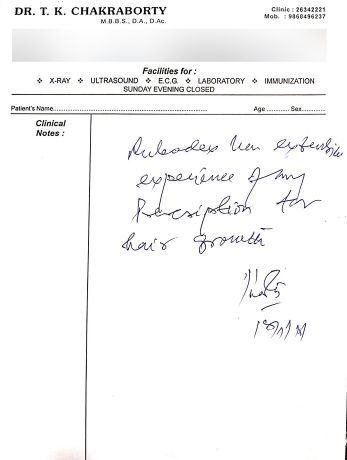 DR. T. K. CHAKRABORTY
M.B.B.S., D.A., D.Ac.
Clinic : 26342221
Mob. : 9868496237
Facilities for :
❖ X-RAY ❖ ULTRASOUND ❖ E.C.G. ❖ LABORATORY ❖ IMMUNIZATION
SUNDAY EVENING CLOSED
Patient's Name Age Sex
Clinical
Notes :
extensive
experience of my
Prescription for
hair growth